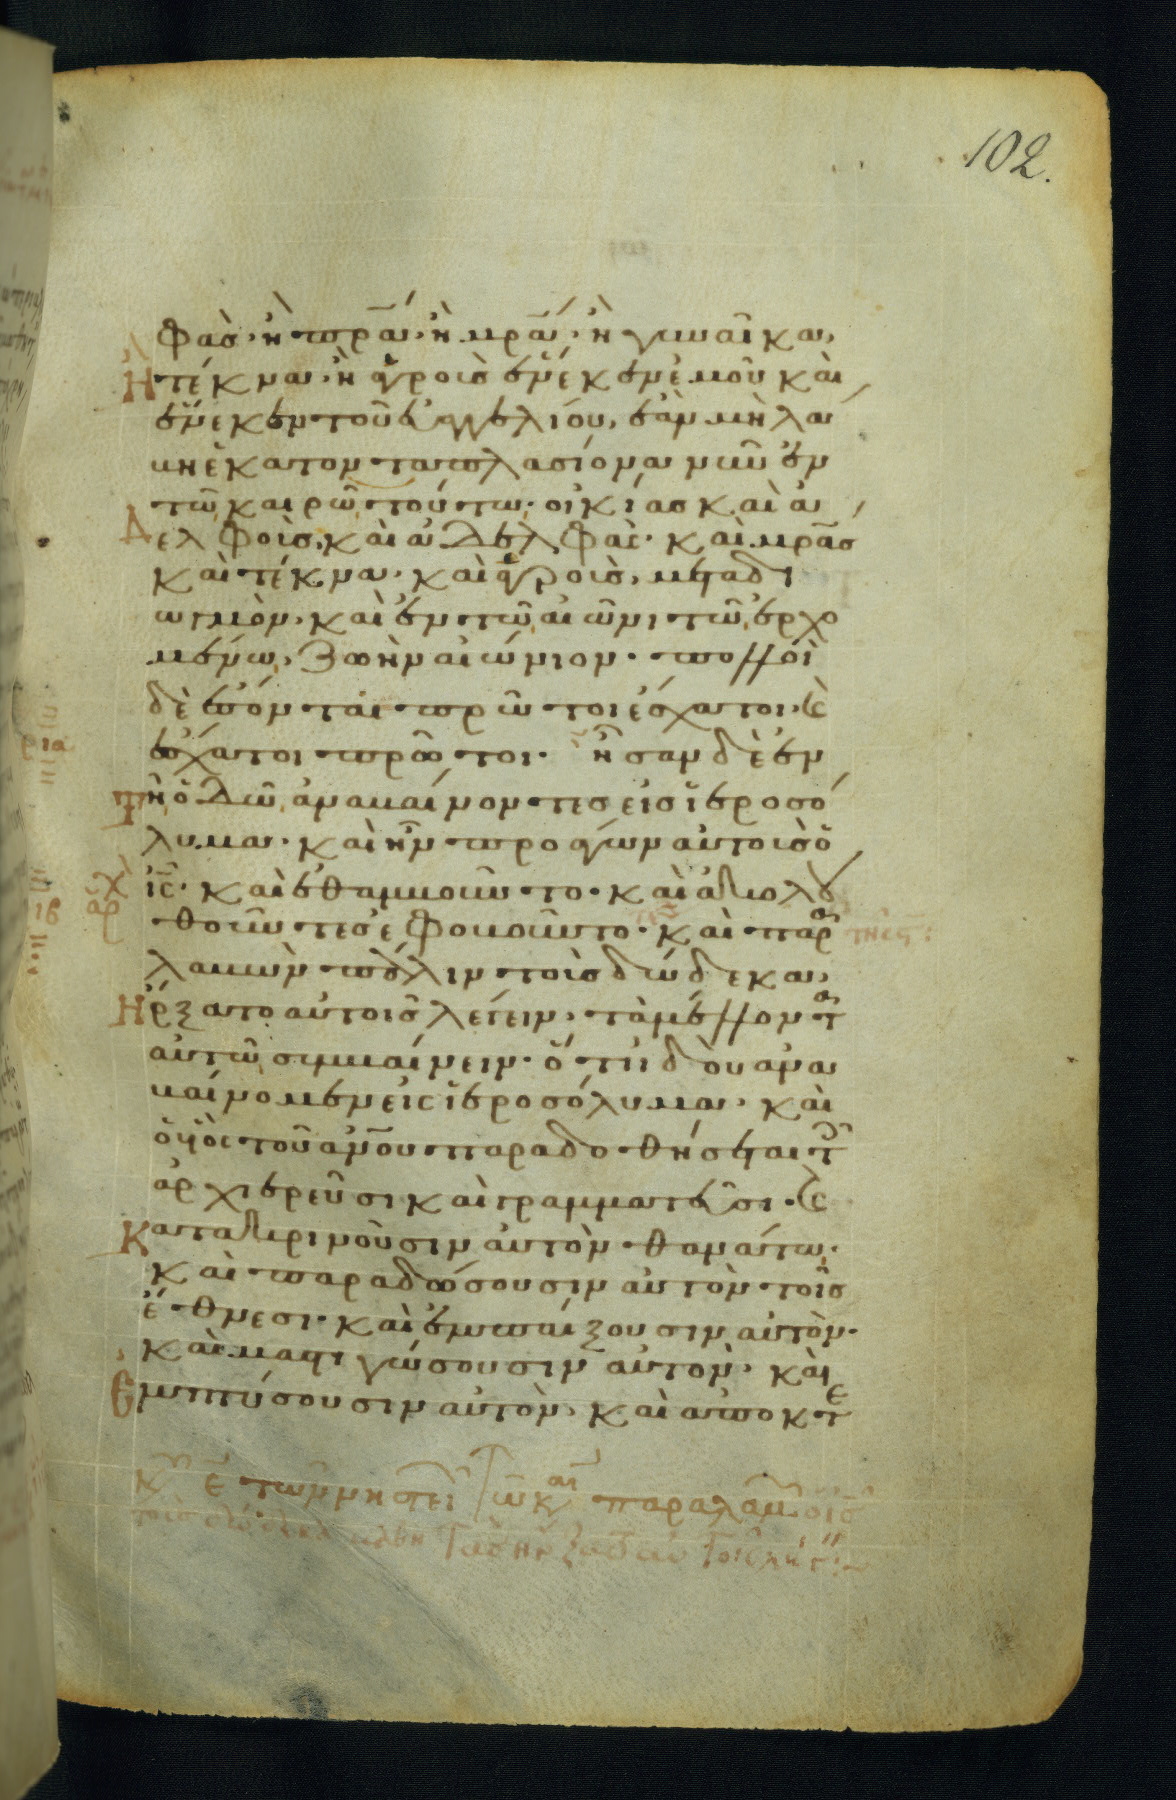 102.
φὰσ· ἢ πρ̅α· ἢ μρ̅α· ἢ γυναῖκα,
Ἢ τέκνα· ἢ ἀγροὺσ ἕνεκεν ἐμοῦ καὶ
ἕνεκεν τοῦ εὐαγγελίου, ἐὰν μὴ λά
βη ἑκατονταπλασίονα νῦν ἐν
τῶ καιρῶ τούτω· οἰκίασ καὶ ἀ
Δελφοὺσ, καὶ ἀδελφὰσ· καὶ μρ̅ασ
καὶ τέκνα· καὶ ἀγροὺσ, μετὰ δι
ωγμὸν· καὶ ἐν τῶ αἰῶνι τῶ ἐρχο
μένω, ζωὴν αἰώνιον· πολλοὶ
δὲ ἔσονται πρῶτοι ἔσχατοι· κ(αὶ)
ἔσχατοι πρῶτοι· ἦσαν δὲ ἐν
Τῆ ὁδῶ ἀναβαίνοντεσ εἰσ ἱεροσό
λυμα· καὶ ἦν προάγων αὐτοὺσ ὁ
ι̅σ̅· καὶ ἐθαμβοῦντο· καὶ ἀκολου
θοῦντεσ ἐφοβοῦντο· καὶ παρα
λαβὼν πάλιν τοὺσ δώδεκα,
Ἤρξατο αὐτοῖσ λέγειν, τὰ μέλλοντα
αὐτῶ συμβαίνειν· ὅτι ἰδοὺ ἀνα
βαίνομεν εἰσ ἱεροσόλυμα· καὶ
ὁ υἱὸσ τοῦ ἀν̅ου παραδοθήσεται τοῖσ
ἀρχιερεῦσι καὶ γραμματεῦσι· κ(αὶ)
Κατακρινοῦσιν αὐτὸν θανάτω·
καὶ παραδώσουσιν αὐτὸν τοῖσ
ἔθνεσι· καὶ ἐμπαίξουσιν αὐτὸν·
καὶ μαστιγώσουσιν αὐτὸν· καὶ
Ἐμπτύσουσιν αὐτὸν, καὶ ἀποκτε
κυ ε τῶν νηστει τῶ κ παραλαμ ὁ ι̅σ̅
τοὺσ δώδεκα